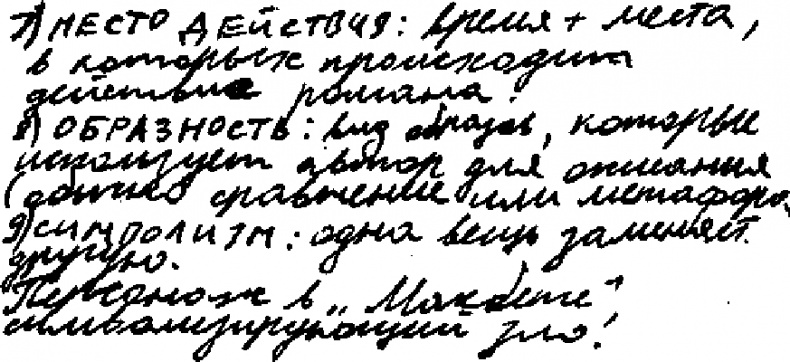 7) МЕСТО ДЕЙСТВИЯ: время + места,
в которых происходит
действие романа.
8) ОБРАЗНОСТЬ: вид образов, которые
использует автор для описания
(обычно сравнение или метафора.
9) СИМВОЛИЗМ: одна вещь заменяет
другую.
Персонаж в „Макбете“
символизирующий зло!